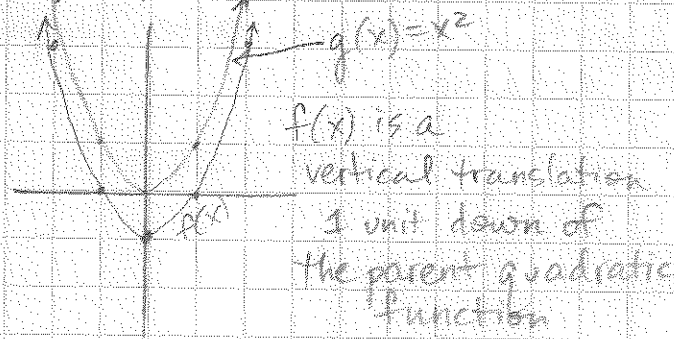 g(x)=x²
f(x) is a
vertical translation
1 unit down of
f(x)
the parent quadratic
function